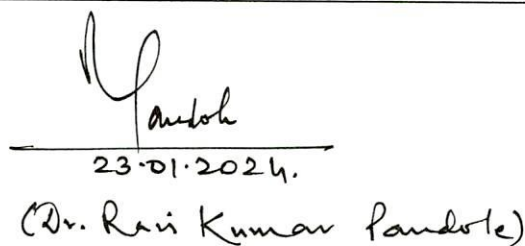 Pandole
23.01.2024.
(Dr. Ravi Kumar Pandole)